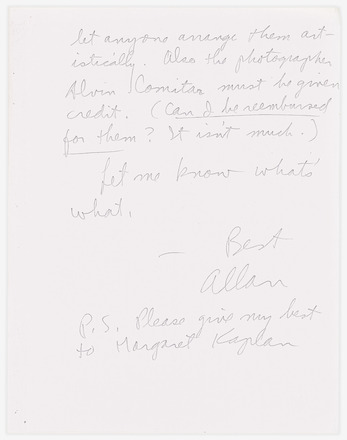 let anyone arrange them art-
istically. Also the photographer
Alvin Comitas must be given
credit. (Can I be reembursed
for them? It isn't much.)
Let me know what's
what.
— Best
Allan
P.S. Please give my best
to Margaret Kaplan